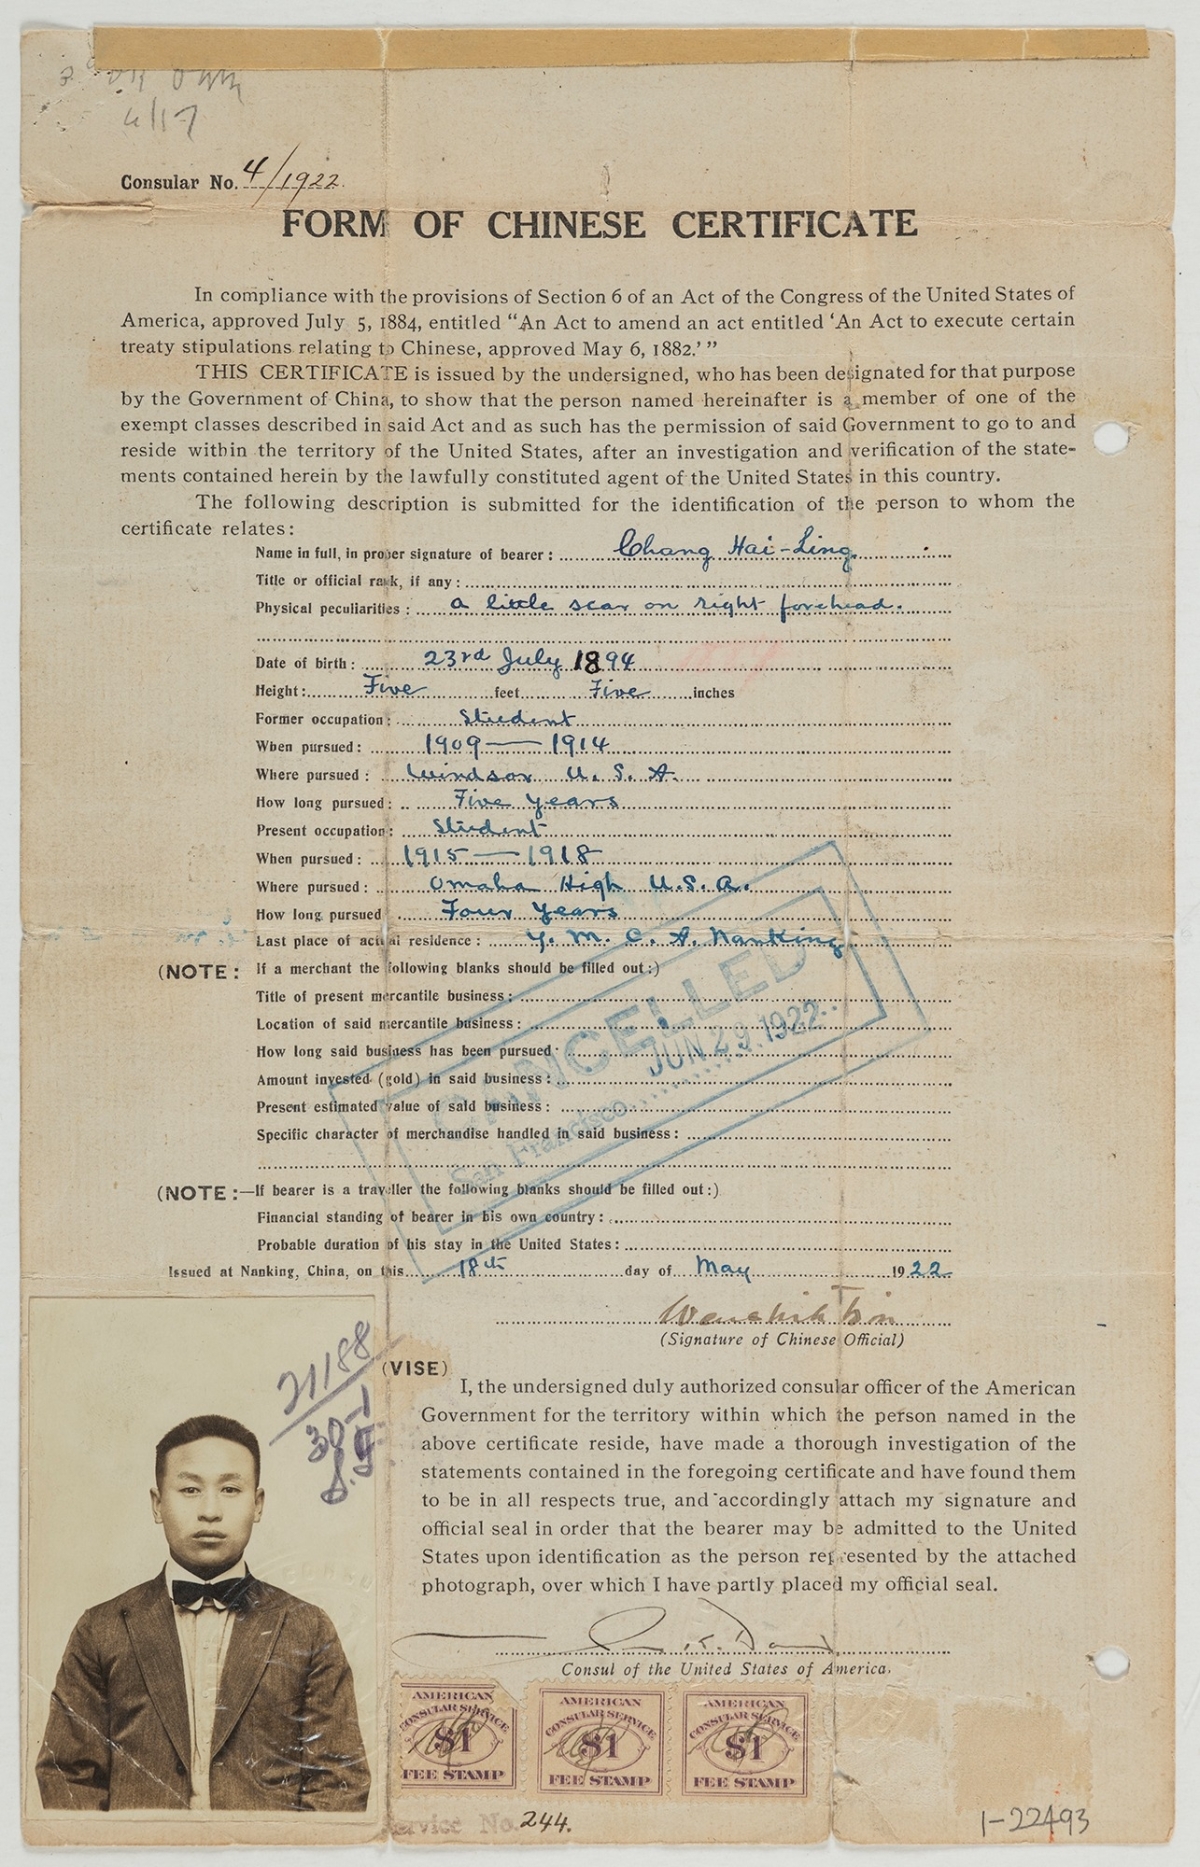 4/17
Consular No. 4/1922
FORM OF CHINESE CERTIFICATE
In compliance with the provisions of Section 6 of an Act of the Congress of the United States of
America, approved July 5, 1884, entitled “An Act to amend an act entitled ‘An Act to execute certain
treaty stipulations relating to Chinese, approved May 6, 1882.’ ”
THIS CERTIFICATE is issued by the undersigned, who has been designated for that purpose
by the Government of China, to show that the person named hereinafter is a member of one of the
exempt classes described in said Act and as such has the permission of said Government to go to and
reside within the territory of the United States, after an investigation and verification of the state-
ments contained herein by the lawfully constituted agent of the United States in this country.
The following description is submitted for the identification of the person to whom the
certificate relates:
Name in full, in proper signature of bearer: Chang Hai-Ling.
Title or official rank, if any:
Physical peculiarities: a little scar on right forehead.
Date of birth: 23rd July 1894
Height: Five feet Five inches
Former occupation: Student
When pursued: 1909 — 1914
Where pursued: Windsor U. S. A.
How long pursued: Five years
Present occupation: Student
When pursued: 1915 — 1918
Where pursued: Omaha High U.S.A.
How long pursued Four years
Last place of actual residence: Y. M. C. A. Nanking.
(NOTE: If a merchant the following blanks should be filled out:)
Title of present mercantile business:
Location of said mercantile business:
How long said business has been pursued:
Amount invested (gold) in said business:
Present estimated value of said business:
Specific character of merchandise handled in said business:
CANCELLED
JUN 29 1922
San Francisco
(NOTE:—If bearer is a traveller the following blanks should be filled out:)
Financial standing of bearer in his own country:
Probable duration of his stay in the United States:
Issued at Nanking, China, on this 18th day of May 1922
(Signature of Chinese Official)
21188
30-1
(VISE)
I, the undersigned duly authorized consular officer of the American
Government for the territory within which the person named in the
above certificate reside, have made a thorough investigation of the
statements contained in the foregoing certificate and have found them
to be in all respects true, and accordingly attach my signature and
official seal in order that the bearer may be admitted to the United
States upon identification as the person represented by the attached
photograph, over which I have partly placed my official seal.
Consul of the United States of America.
AMERICAN CONSULAR SERVICE $1 FEE STAMP
AMERICAN CONSULAR SERVICE $1 FEE STAMP
AMERICAN CONSULAR SERVICE $1 FEE STAMP
Service No. 244.
1-22493